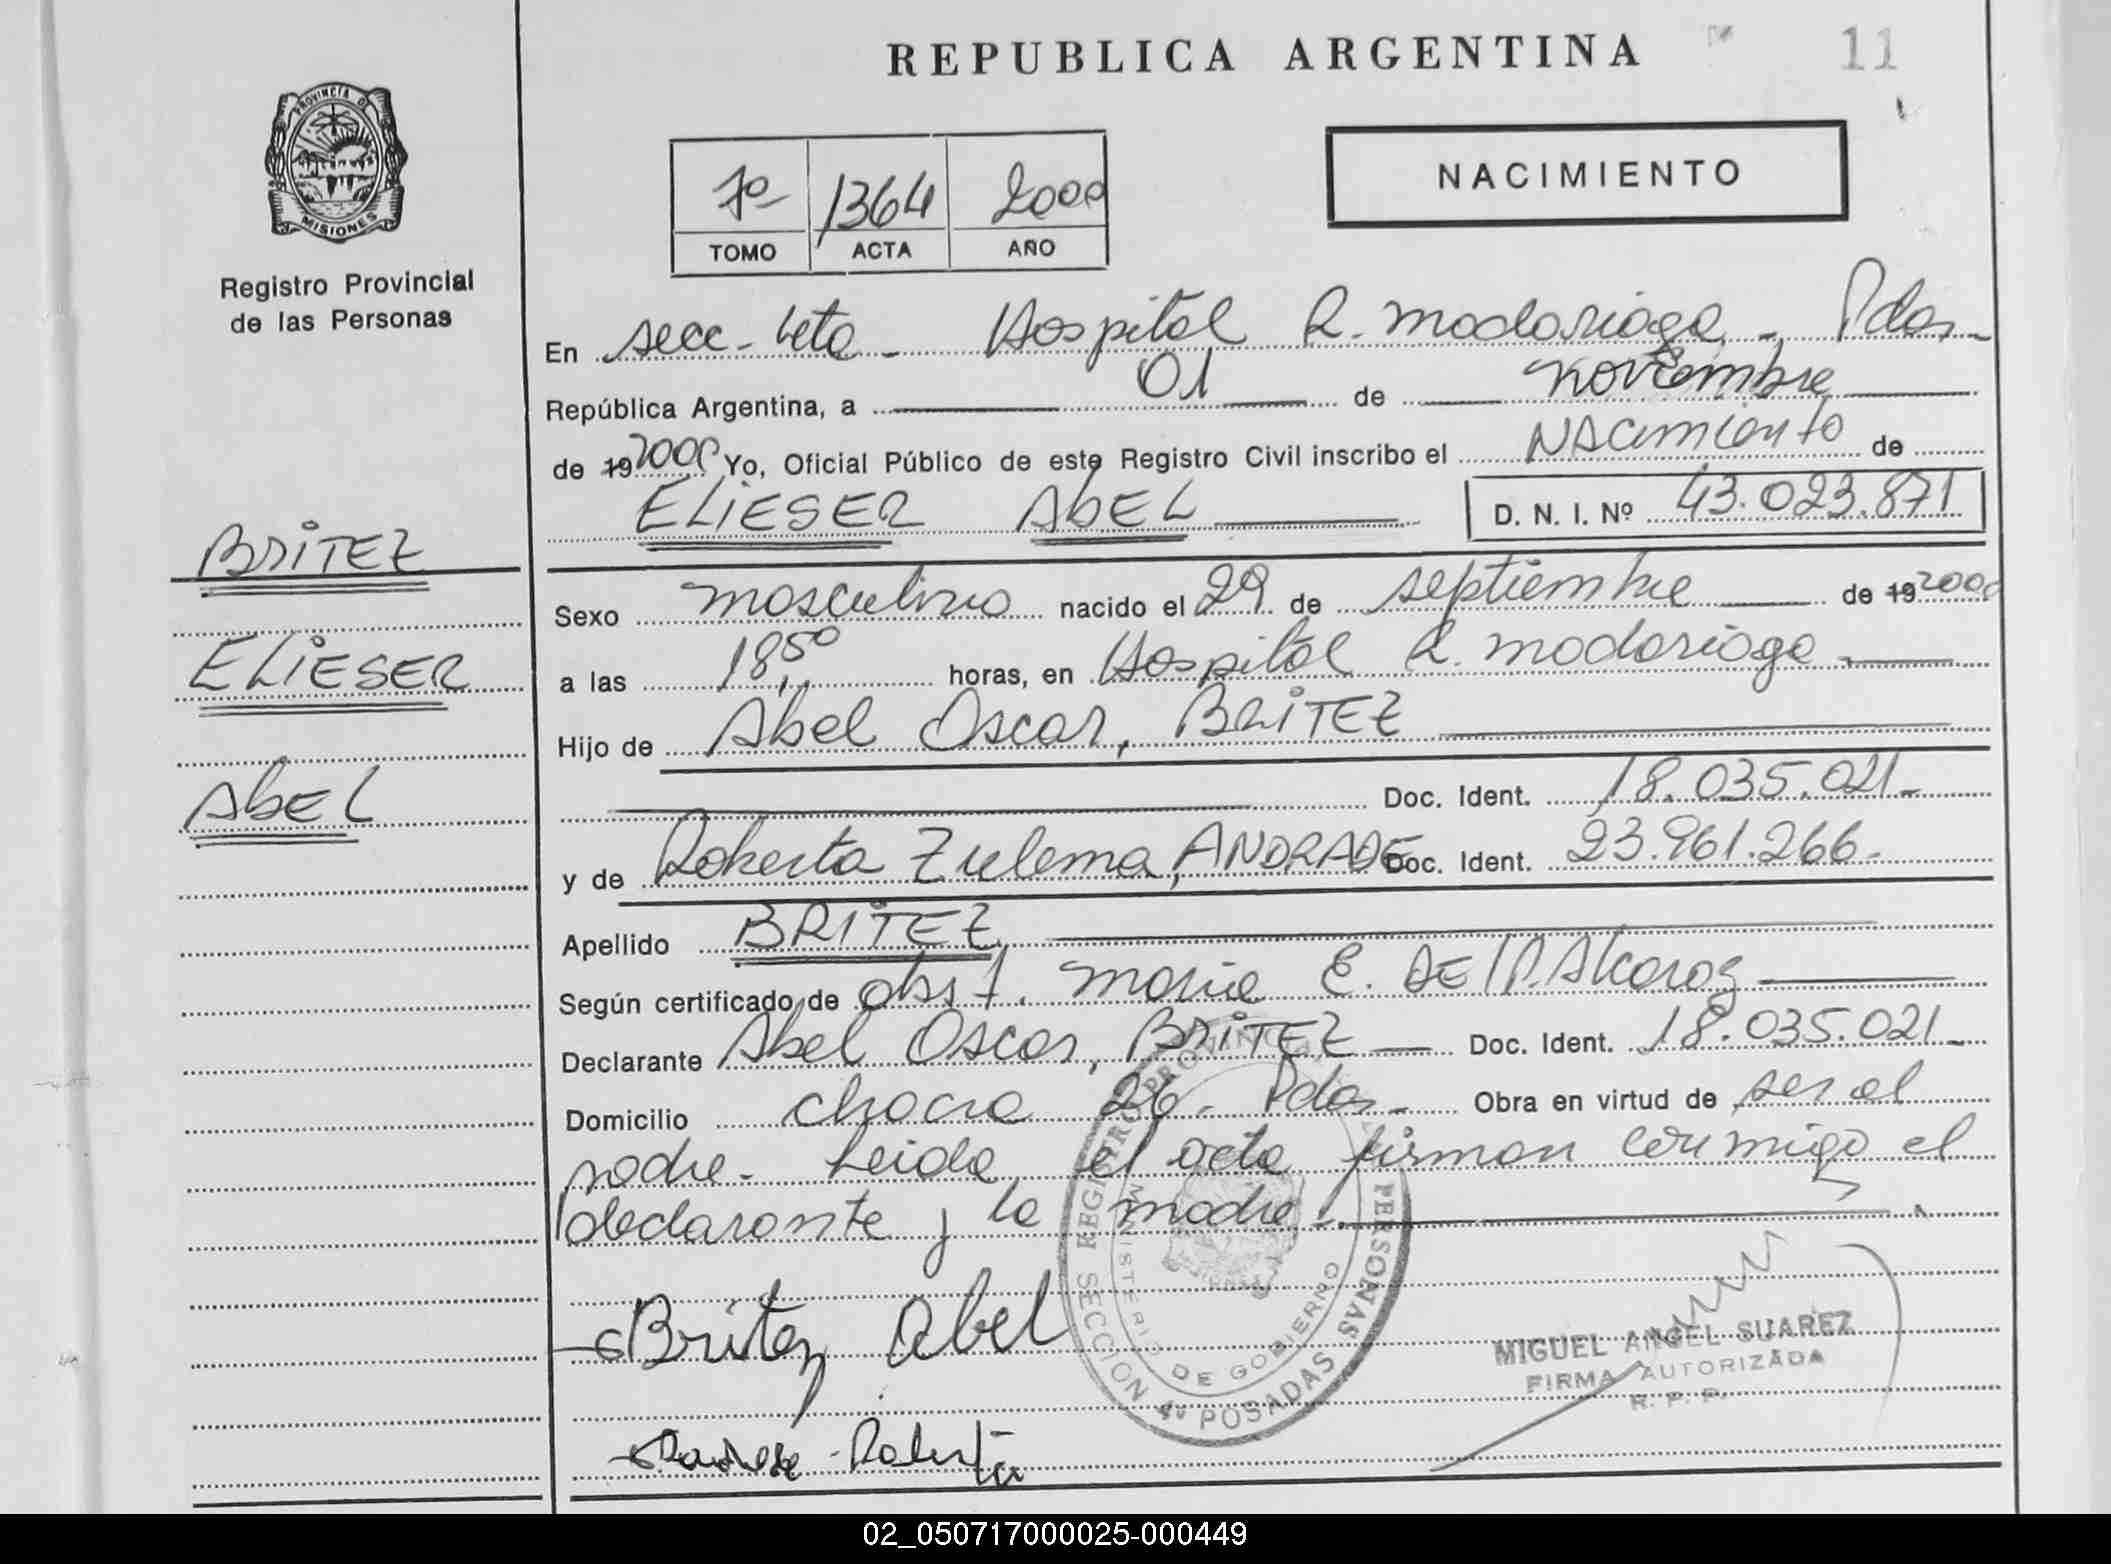 REPUBLICA ARGENTINA
11
PROVINCIA DE
MISIONES
Registro Provincial
de las Personas
7º 1364 2000
TOMO ACTA AÑO
NACIMIENTO
En Secc. 4ta - Hospital R. Madariaga - Pdas -
República Argentina, a 01 de noviembre
de 19 2000 Yo, Oficial Público de este Registro Civil inscribo el NAcimiento de
ELiESER AbEL
D. N. I. Nº 43.023.871
BRiTEZ
ELiESER
AbEL
Sexo masculino nacido el 29 de septiembre de 19 2000
a las 18,50 horas, en Hospital R. Madariaga
Hijo de Abel Oscar, BRiTEZ
Doc. Ident. 18.035.021-
y de Roberta Zulema, ANDRADE Doc. Ident. 23.961.266-
Apellido BRiTEZ
Según certificado de obst. Maria E. DE
Declarante Abel Oscar, BRiTEZ Doc. Ident. 18.035.021-
Domicilio chacra 26 - Pdas - Obra en virtud de ser el
padre. Leida el acta firman conmigo el
declarante y la madre
Britez Abel
Roberta
REGISTRO PROVINCIAL PERSONAS
MINISTERIO DE GOBIERNO
SECCION 4º POSADAS
MIGUEL ANGEL SUAREZ
FIRMA AUTORIZADA
R. P. P.
02_050717000025-000449